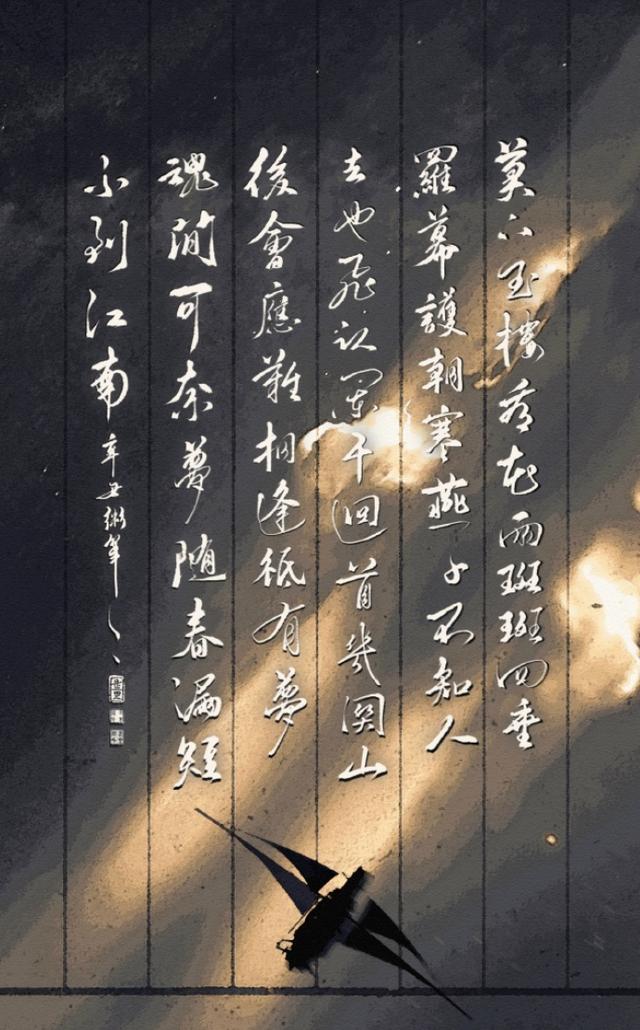 莫上玉樓看花雨斑斑四垂
羅幕護朝寒燕子不知人
去也飛認闌干回首幾關山
後會應難相逢祗有夢
魂間可奈夢随春漏短
不到江南辛丑